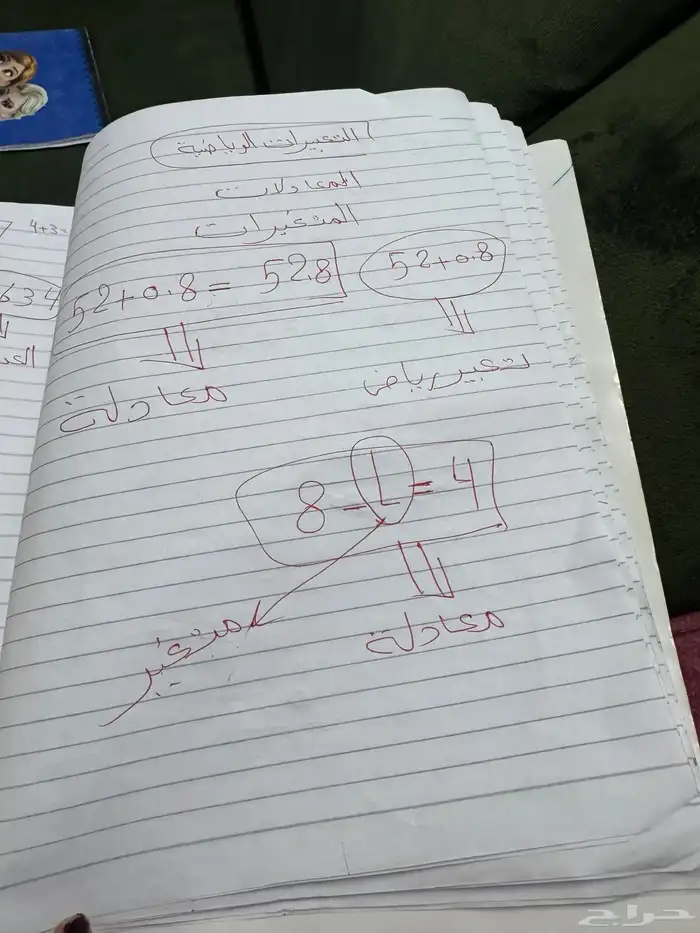 التعبيرات الرياضية
المعادلات
المتغيرات
52+0.8
52+0.8 = 52.8
تعبير رياضي
معادلة
8 - L = 4
معادلة
متغير
4+3=
634
حراج